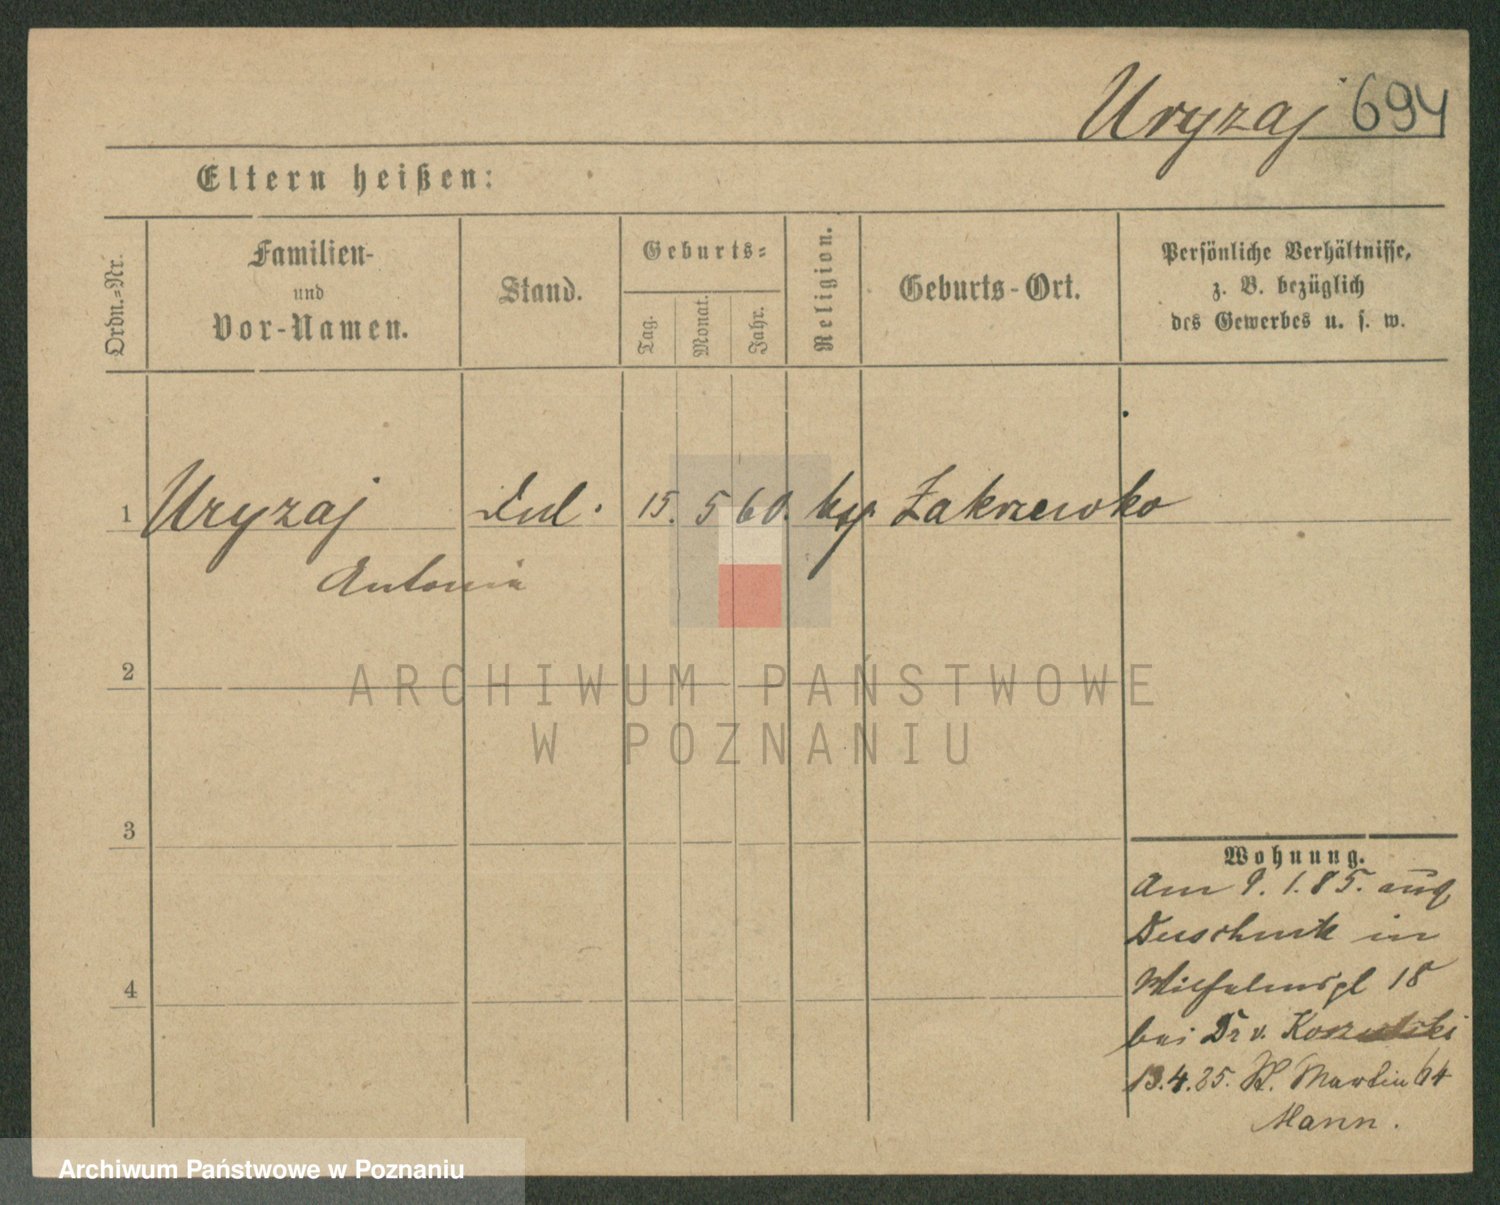 Uryzaj 694
Eltern heißen:
Ordn.-Nr.
Familien-
und
Vor-Namen.
Stand.
Geburts-
Tag.
Monat.
Jahr.
Religion.
Geburts-Ort.
Persönliche Verhältnisse,
z. B. bezüglich
des Gewerbes u. s. w.
1 Uryzaj 15. 5 60. Zakrzewko
Antonia
2
ARCHIWUM PAŃSTWOWE
W POZNANIU
3
4
Wohnung.
Am 9. 1. 85. aus
Duschnik in
Wilhelmspl 18
bei Dr v. Koszutski
13.4.85. St. Martin 64
Mann.
Archiwum Państwowe w Poznaniu